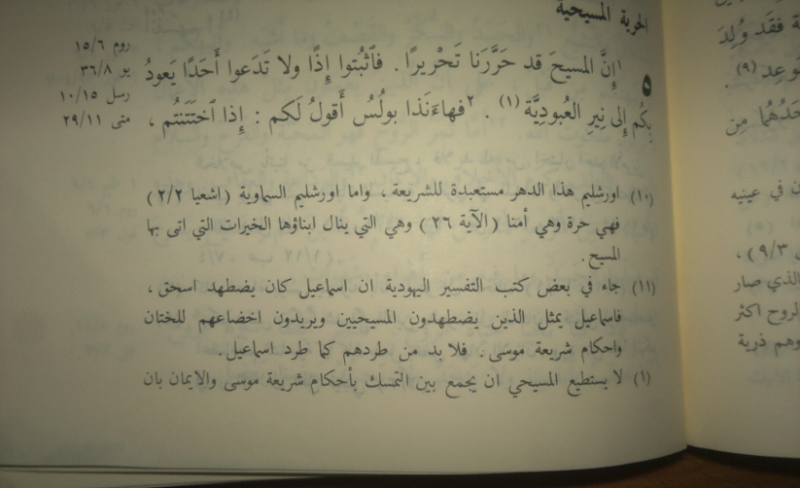 الحرية المسيحية
روم ١٥/٦
يو ٣٦/٨
رسل ١٠/١٥
متى ٢٩/١١
٥
١إِنَّ المسيحَ قد حَرَّرَنا تَحْريرًا . فٱثبُتوا إِذًا ولا تَدَعوا أَحَدًا يَعودُ
بِكُم إِلى نِيرِ العُبودِيَّة (١) . ٢فهاءَنَذا بولُسُ أَقولُ لَكم : إِذا ٱختَتَنتُم ،
(١٠) اورشليم هذا الدهر مستعبدة للشريعة ، واما اورشليم السماوية (اشعيا ٢/٢)
فهي حرة وهي أمنا (الآية ٢٦) وهي التي ينال ابناؤها الخيرات التي اتى بها
المسيح .
(١١) جاء في بعض كتب التفسير اليهودية ان اسماعيل كان يضطهد اسحق ،
فاسماعيل يمثل الذين يضطهدون المسيحيين ويريدون اخضاعهم للختان
واحكام شريعة موسى . فلا بد من طردهم كما طرد اسماعيل .
(١) لا يستطيع المسيحي ان يجمع بين التمسك بأحكام شريعة موسى والايمان بان
ة فقَد وُلِدَ
وَعِد (٩) .
حَدُهُما مِن
ن في عينيه
٩/٣) ،
الذي صار
لروح اكثر
وهم ذرية